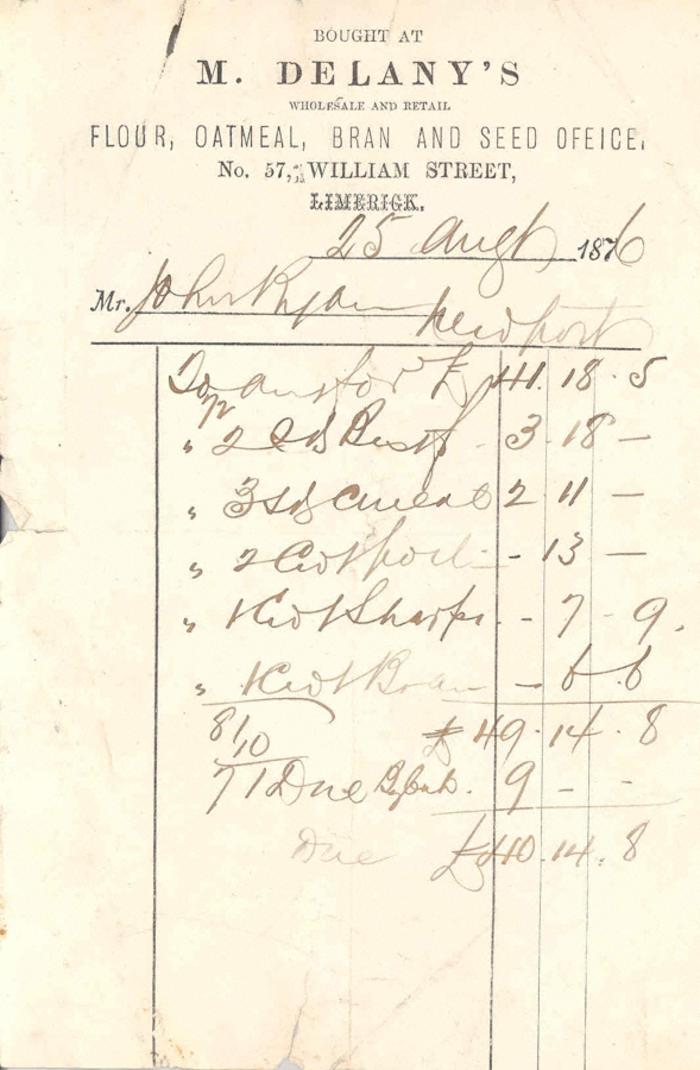 BOUGHT AT
M. DELANY'S
WHOLESALE AND RETAIL
FLOUR, OATMEAL, BRAN AND SEED OFEICE,
No. 57, WILLIAM STREET,
LIMERICK.
25 Augt 1876
Mr. John Ryan Newport
To £ 41. 18. 5
" 2 Best 3. 18 —
" 3 2 11 —
" 2 Cwt - 13 —
" 1 Cwt Sharps. - 7 - 9.
" 1 Cwt Bran - 6. 6
81/10 £ 49. 14. 8
71 Due By Cash. 9 - -
Due £ 40. 14. 8